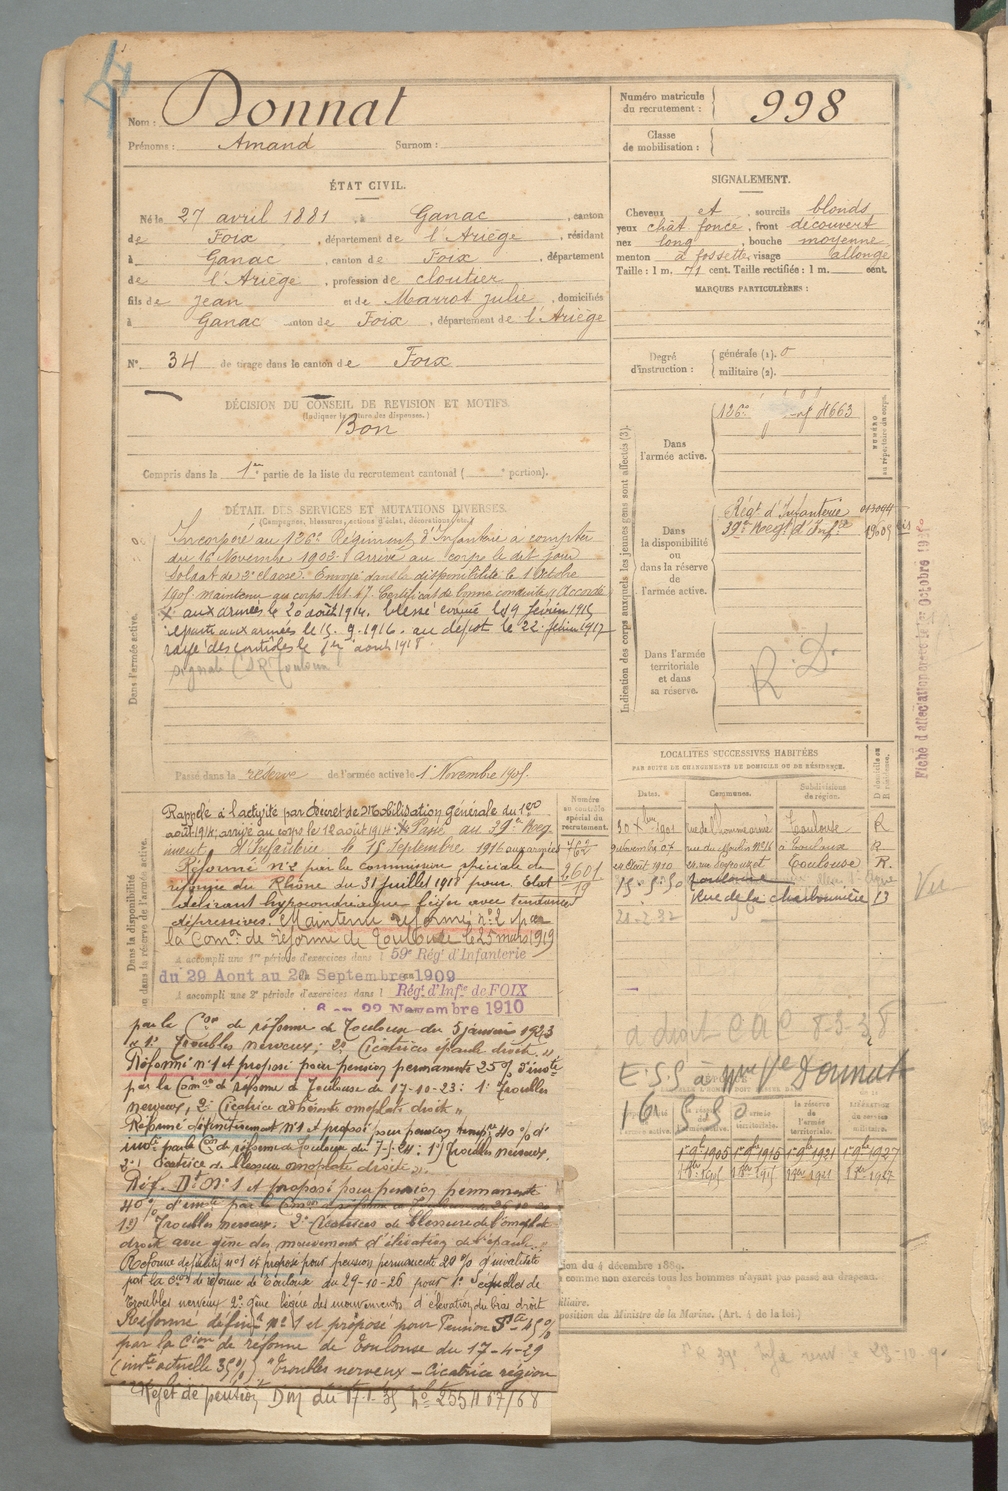 Nom : Donnat
Prénoms : Amand Surnom :
Numéro matricule du recrutement : 998
Classe de mobilisation :
ÉTAT CIVIL.
Né le 27 avril 1881, à Ganac, canton
de Foix, département de l'Ariège, résidant
à Ganac, canton de Foix, département
de l'Ariège, profession de cloutier
fils de Jean et de Marrot Julie, domiciliés
à Ganac canton de Foix, département de l'Ariège
N° 34 de tirage dans le canton de Foix
SIGNALEMENT.
Cheveux et, sourcils blonds
yeux chât foncé, front découvert
nez long, bouche moyenne
menton à fossette, visage allongé
Taille : 1 m. 71 cent. Taille rectifiée : 1 m. cent.
MARQUES PARTICULIÈRES :
Degré d'instruction : générale (1). 0
militaire (2).
DÉCISION DU CONSEIL DE REVISION ET MOTIFS.
Bon
Compris dans la 1re partie de la liste du recrutement cantonal ( portion).
DÉTAIL DES SERVICES ET MUTATIONS DIVERSES.
(Campagnes, blessures, actions d'éclat, décorations, etc.)
Dans l'armée active.
Incorporé au 126e Régiment d'Infanterie à compter
du 16 Novembre 1902. Arrivé au corps le dit jour
Soldat de 2e classe. Envoyé dans la disponibilité le 1 Octobre
1905. Certificat de bonne conduite accordé
aux armées le 20 août 1914. blessé évacué le 9 février 1915
reparti aux armées le 15-9-1916. au dépôt le 22 février 1917
rayé des contrôles le 1er août 1918.
Passé dans la réserve de l'armée active le 1 Novembre 1905.
Indication des corps auxquels les jeunes gens sont affectés (3).
NUMÉRO au répertoire du corps.
Dans l'armée active.
126e
Dans la disponibilité ou dans la réserve de l'armée active.
Régt d'Infanterie
39e Régt d'Infie
Dans l'armée territoriale et dans sa réserve.
R. D.
Fiche d'affectation
LOCALITÉS SUCCESSIVES HABITÉES
PAR SUITE DE CHANGEMENTS DE DOMICILE OU DE RÉSIDENCE.
Dates. Communes. Subdivisions de région. D domicile ou R résidence.
30 Xbre 1901 rue de l'homme armé Toulouse R
9 Novembre 07 rue du Moulin à Toulouse R
Août 1910 Toulouse R.
15-5-30 Toulouse
Rue de la charbonnière 13
21-2-32
Vu
Dans la disponibilité ou dans la réserve de l'armée active.
Numéro au contrôle spécial du recrutement.
Rappelé à l'activité par décret de Mobilisation Générale du 1er
août 1914, arrivé au corps le 12 août 1914. Passé au 39e Rég
iment d'Infanterie le 15 Septembre 1916 aux armées
Réformé n° 2 par la commission spéciale de
réforme du Rhône du 31 juillet 1918 pour Etat
délirant hypocondriaque léger avec tendances
dépressives. Maintenu réformé n° 2 par
la Comon de réforme de Toulouse le 25 mars 1919
A accompli une 1re période d'exercices dans l 59e Rég. d'Infanterie
du 29 Aout au 20 Septembre 1909
A accompli une 2e période d'exercices dans l Rég. d'Infie de FOIX
6 au 22 Novembre 1910
par la Con de réforme de Toulouse du 5 janvier 1923
1° Troubles nerveux ; 2° Cicatrices épaule droite »
Réformé n° 1 et proposé pour pension permanente 25% d'invté
par la Comon de réforme de Toulouse du 17-10-23 : 1° Troubles
nerveux, 2° Cicatrice adhérente omoplate droite »
Réformé définitivement n° 1 et proposé pour pension tempre 40% d'
invté par la Con de réforme de Toulouse du 7-5-24 : 1°) Troubles nerveux.
2° Cicatrice de blessure omoplate droite ».
Réf. Dt N° 1 et proposé pour pension permanente
40% d'invté par la Comon de réforme de Toulouse
1°) Troubles nerveux. 2° Cicatrices de blessure de l'omoplate
droite avec gêne des mouvements d'élévation de l'épaule
Réforme définitive n° 1 et proposé pour pension permanente 20% d'invalidité
par la Cion de réforme de Toulouse du 29-10-26 pour 1° Séquelles de
troubles nerveux 2° gêne légère des mouvements d'élévation du bras droit
Réforme définit n° 1 et proposé pour Pension Pte 45%
par la Cion de réforme de Toulouse du 17-4-29
(invté actuelle 35%) "Troubles nerveux – Cicatrice région
Rejet de pension
a droit CAC 8-3-38
E.S.S à Mme Ve Donnat
de l'armée territoriale. la réserve de l'armée territoriale.
1 9bre 1905 1 9bre 1915 1 9bre 1921 1 9bre 1927
du 4 décembre 1889.
comme non exercés tous les hommes n'ayant pas passé au drapeau.
position du Ministre de la Marine. (Art. 4 de la loi.)